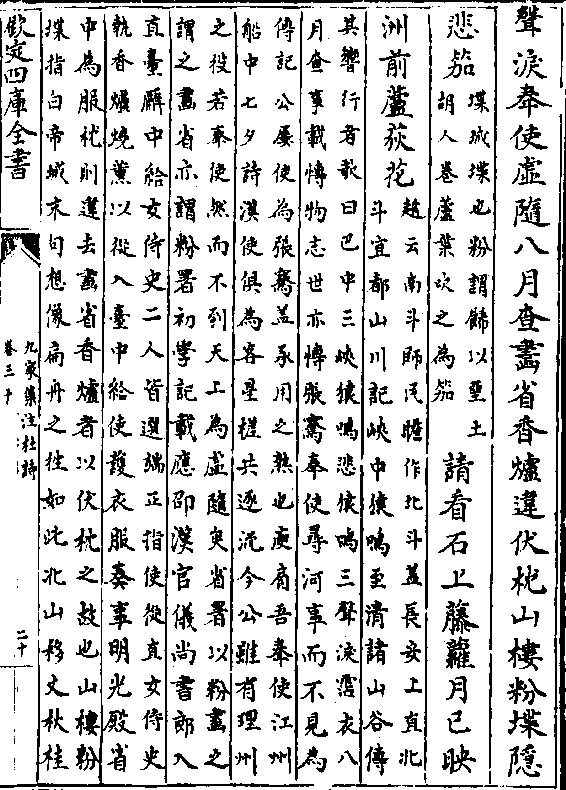 聲淚奉使虛隨八月查畫省香爐違伏枕山樓粉堞隱
悲笳
堞城堞也粉謂飾以堊土
胡人卷蘆葉吹之為笳
請看石上藤蘿月已映
洲前蘆荻花
趙云南斗師民瞻作北斗蓋長安上直北
斗宜都山川記峽中猿鳴至清諸山谷傳
其響行者歌曰巴中三峽猿鳴悲猿鳴三聲淚霑衣八
月查事載博物志世亦傳張騫奉使尋河事而不見為
傳記公屢使為張騫蓋承用之熟也庾肩吾奉使江州
船中七夕詩漢使俱為客星槎共逐流今公雖有理州
之役若奉使然而不到天上為虛隨臾省署以粉畫之
謂之畫省亦謂粉署初學記載應邵漢官儀尚書郎入
直臺廨中給女侍史二人皆選端正指使從直女侍史
執香爐燒薰以從入臺中給使護衣服奏事明光殿省
中為服枕則違去畫省香爐者以伏枕之故也山樓粉
堞指白帝城末句想像扁舟之往如此北山移文秋桂
欽定四庫全書
九家集注杜詩
卷三十
二十